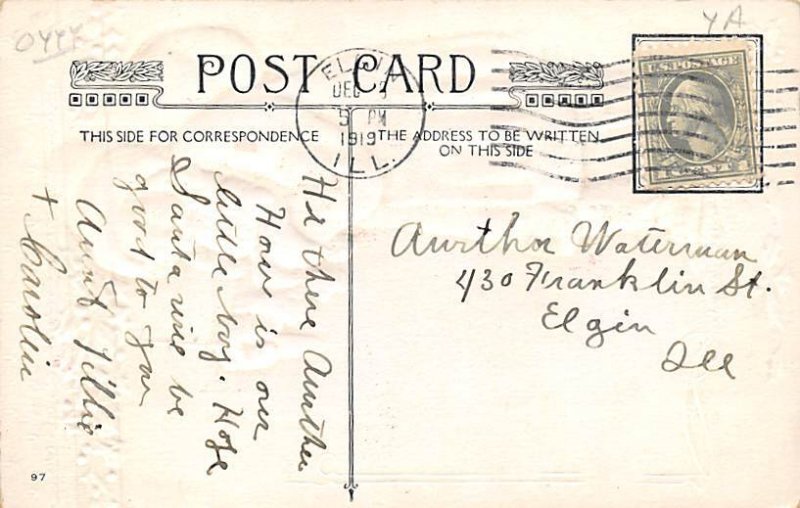 POST CARD
ELGIN
DEC
5 PM
1919
ILL.
THIS SIDE FOR CORRESPONDENCE
THE ADDRESS TO BE WRITTEN
ON THIS SIDE
U.S. POSTAGE
Hi there Aurther
How is our
little boy. Hope
Santa will be
good to you
Aunt Tillie
+ Carolin
Aurthor Waterman
430 Franklin St.
Elgin
Ill
97